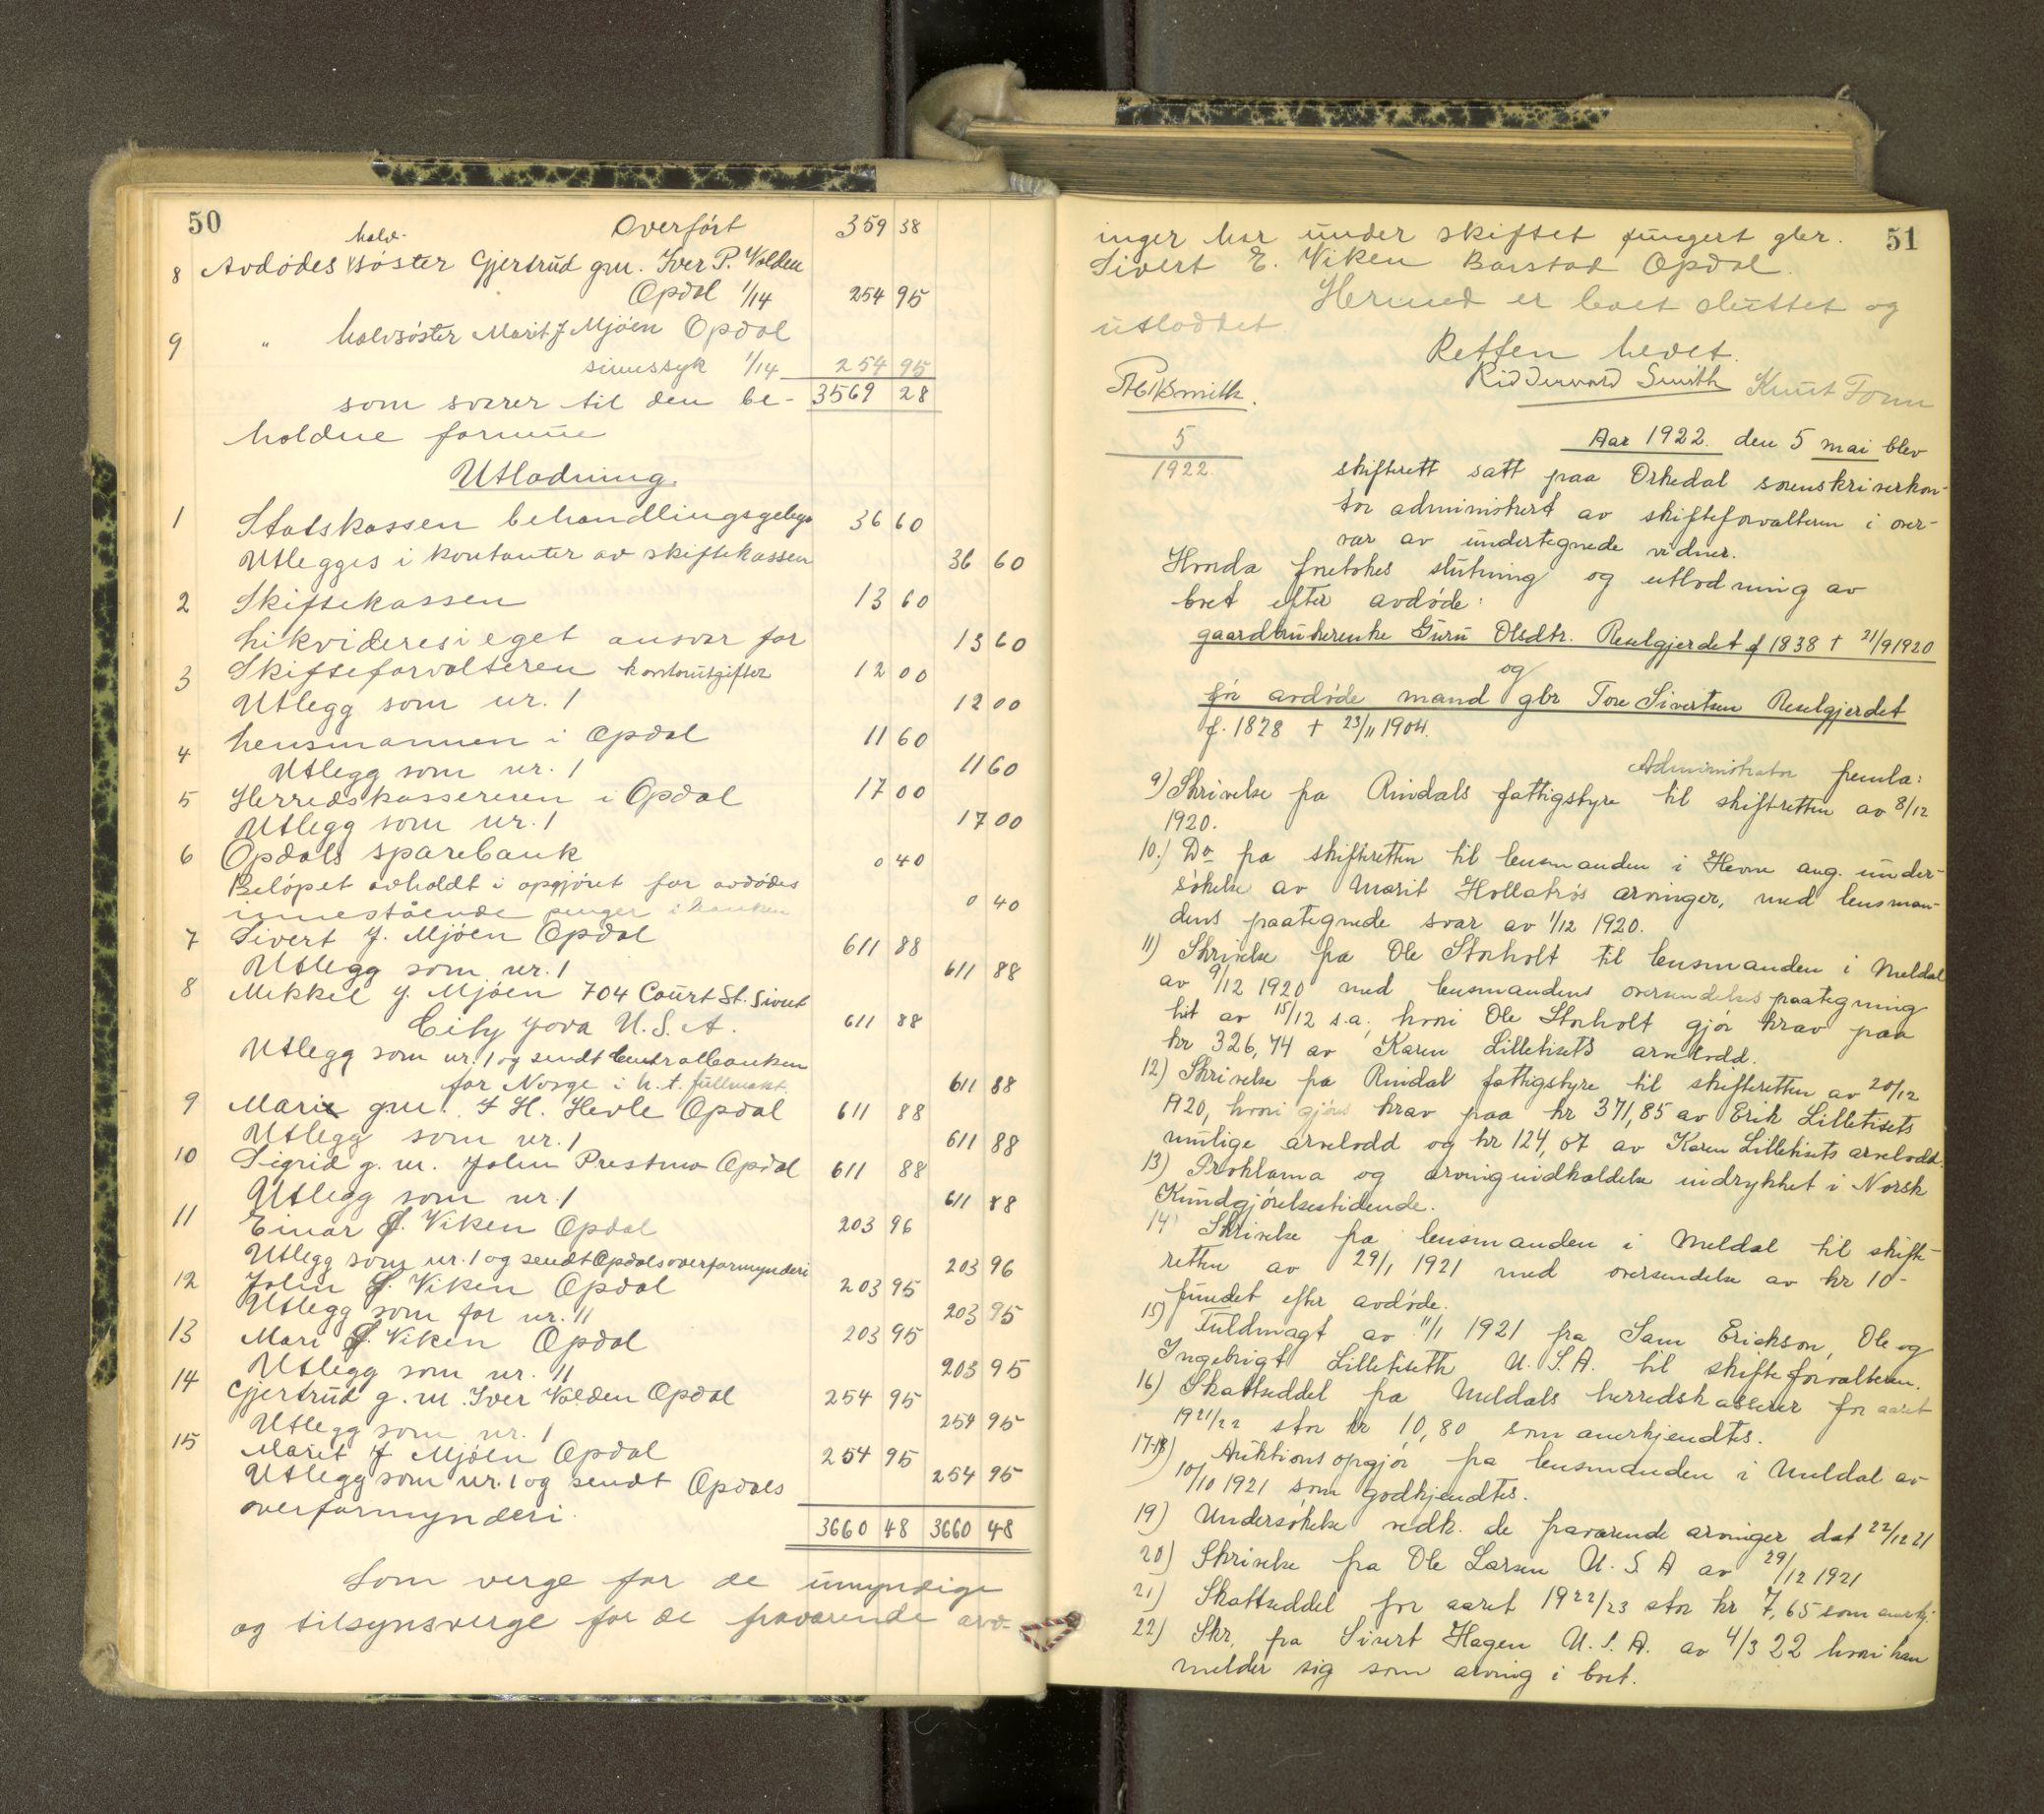 50
Overført 359 38
8 Avdødes halv- søster Gjertrud gm. Iver P. Volden
Opdal 1/14 254 95
9 " halvsøster Marit J Mjøen Opdal
sinnssyk 1/14 254 95
som svarer til den be- 3569 28
holdne formue
Utlodning.
1 Statskassen behandlingsgebyr 36 60
Utlegges i kontanter av skiftekassen 36 60
2 Skiftekassen 13 60
Likvideres i eget ansvar for 13 60
3 Skifteforvalteren kontorutgifter 12 00
Utlegg som nr. 1 12 00
4 Lensmannen i Opdal 11 60
Utlegg som nr. 1 11 60
5 Herredskassereren i Opdal 17 00
Utlegg som nr. 1 17 00
6 Opdals sparebank 0 40
Beløpet avholdt i opgjøret for avdødes
innestående penger i banken 0 40
7 Sivert J. Mjøen Opdal 611 88
Utlegg som nr. 1 611 88
8 Mikkel J. Mjøen 704 Court St. Siout
City Jova U.S.A. 611 88
Utlegg som nr. 1 og sendt Centralbanken
for Norge i h. t. fullmakt. 611 88
9 Marie gm. J H. Hevle Opdal 611 88
Utlegg som nr. 1 611 88
10 Sigrid g. m. John Prestmo Opdal 611 88
Utlegg som nr. 1 611 88
11 Einar J. Viken Opdal 203 96
Utlegg som nr. 1 og sendt Opdals overformynderi 203 96
12 John J. Viken Opdal 203 95
Utlegg som for nr. 11 203 95
13 Mari J. Viken Opdal 203 95
Utlegg som nr. 11 203 95
14 Gjertrud g. m. Iver Volden Opdal 254 95
Utlegg som nr. 1 254 95
15 Marit J Mjøen Opdal 254 95
Utlegg som nr. 1 og sendt Opdals 254 95
overformynderi.
3660 48 3660 48
Som verge for de umyndige
og tilsynsverge for de fraværende arv-
51
inger har under skiftet fungert gbr.
Sivert E. Viken Barstad Opdal.
Hermed er boet sluttet og
utloddet
Retten hevet.
Ridderwold Smith Knut Tonn
Smith.
5
1922.
Aar 1922. den 5 mai blev
skifterett satt paa Orkedal sorenskriverkon-
tor administrert av skifteforvalteren i over-
vær av undertegnede vidner.
Hvorda foretokes slutning og utlodning av
boet efter avdøde:
gaardbrukerenke Guru Olsdtr. Reselgjerdet f 1838 † 21/9 1920
og
før avdøde mand gbr Tore Sivertsen Reselgjerdet
f. 1828 † 23/11 1904.
Administrator fremla:
9) Skrivelse fra Rindals fattigstyre til skifteretten av 8/12
1920.
10.) Do fra skifteretten til lensmanden i Hevne ang. under-
søkelse av Marit Hollatrøs arvinger, med lensman-
dens paategnede svar av 1/12 1920.
11) Skrivelse fra Ole Storholt til lensmanden i Meldal
av 9/12 1920 med lensmandens oversendelses paategning
hit av 15/12 s.a. hvori Ole Storholt gjør krav paa
kr 326,74 av Karen Lilletisets arvelodd.
12) Skrivelse fra Rindal fattigstyre til skifteretten av 20/12
1920, hvori gjøres krav paa kr 371,85 av Erik Lilletisets
mulige arvelodd og kr 124,07 av Karen Lilletisets arvelodd.
13) Proklama og arvingindkaldelse indrykket i Norsk
Kundgjørelsestidende.
14) Skrivelse fra lensmanden i Meldal til skifte-
retten av 29/1 1921 med oversendelse av kr 10-
fundet efter avdøde.
15) Fuldmagt av 11/1 1921 fra Sam Erickson, Ole og
Ingebrigt Lilletiseth U.S.A. til skifteforvalteren.
16) Skatteseddel fra Meldals herredskasserer for aaret
1921/22 stor kr 10,80 som anerkjendtes.
17-18) Auktionsopgjør fra lensmanden i Meldal av
10/10 1921 som godkjendtes.
19) Undersøkelse vedk. de fraværende arvinger dat 22/12 21
20) Skrivelse fra Ole Larsen U.S.A av 29/12 1921
21) Skatteseddel for aaret 1922/23 stor kr 7,65 som anerkj.
22) Skr. fra Sivert Hagen U.S.A. av 4/3 22 hvori han
melder sig som arving i boet.